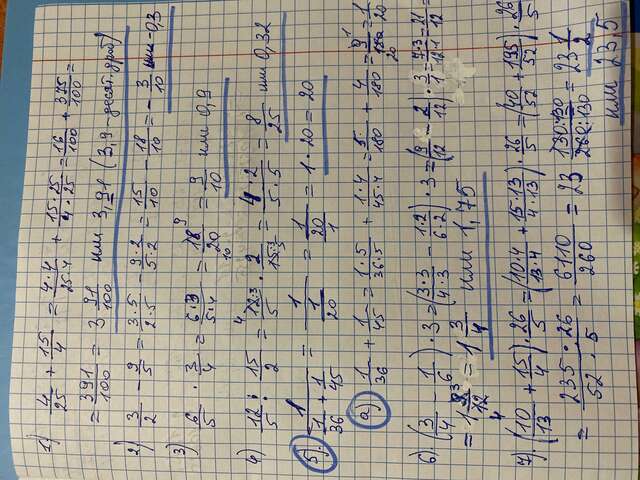 1) 4/25 + 15/4 = 4·4/25·4 + 15·25/4·25 = 16/100 + 375/100 =
= 391/100 = 3 91/100 или 3,91 (3,9 - десят. дроб)
2) 3/2 - 9/5 = 3·5/2·5 - 9·2/5·2 = 15/10 - 18/10 = -3/10 или -0,3
3) 6/5 · 3/4 = 6·3/5·4 = 18/20 = 9/10 или 0,9
4) 12/5 : 15/2 = 12/5 · 2/15 = 4·2/5·5 = 8/25 или 0,32
5) 1/(1/36 + 1/45) = 1/(1/20) = 1 · 20 = 20
а) 1/36 + 1/45 = 1·5/36·5 + 1·4/45·4 = 5/180 + 4/180 = 9/180 = 1/20
6) (3/4 - 1/6) · 3 = (3·3/4·3 - 1·2/6·2) · 3 = (9/12 - 2/12) · 3/1 = 7·3/12·1 = 21/12
= 1 9/12 = 1 3/4 или 1,75
7) (10/13 + 15/4) · 26/5 = (10·4/13·4 + 15·13/4·13) · 26/5 = (40/52 + 195/52) · 26/5
= 235·26/52·5 = 6110/260 = 23 130:130/260:130 = 23 1/2
или 23,5